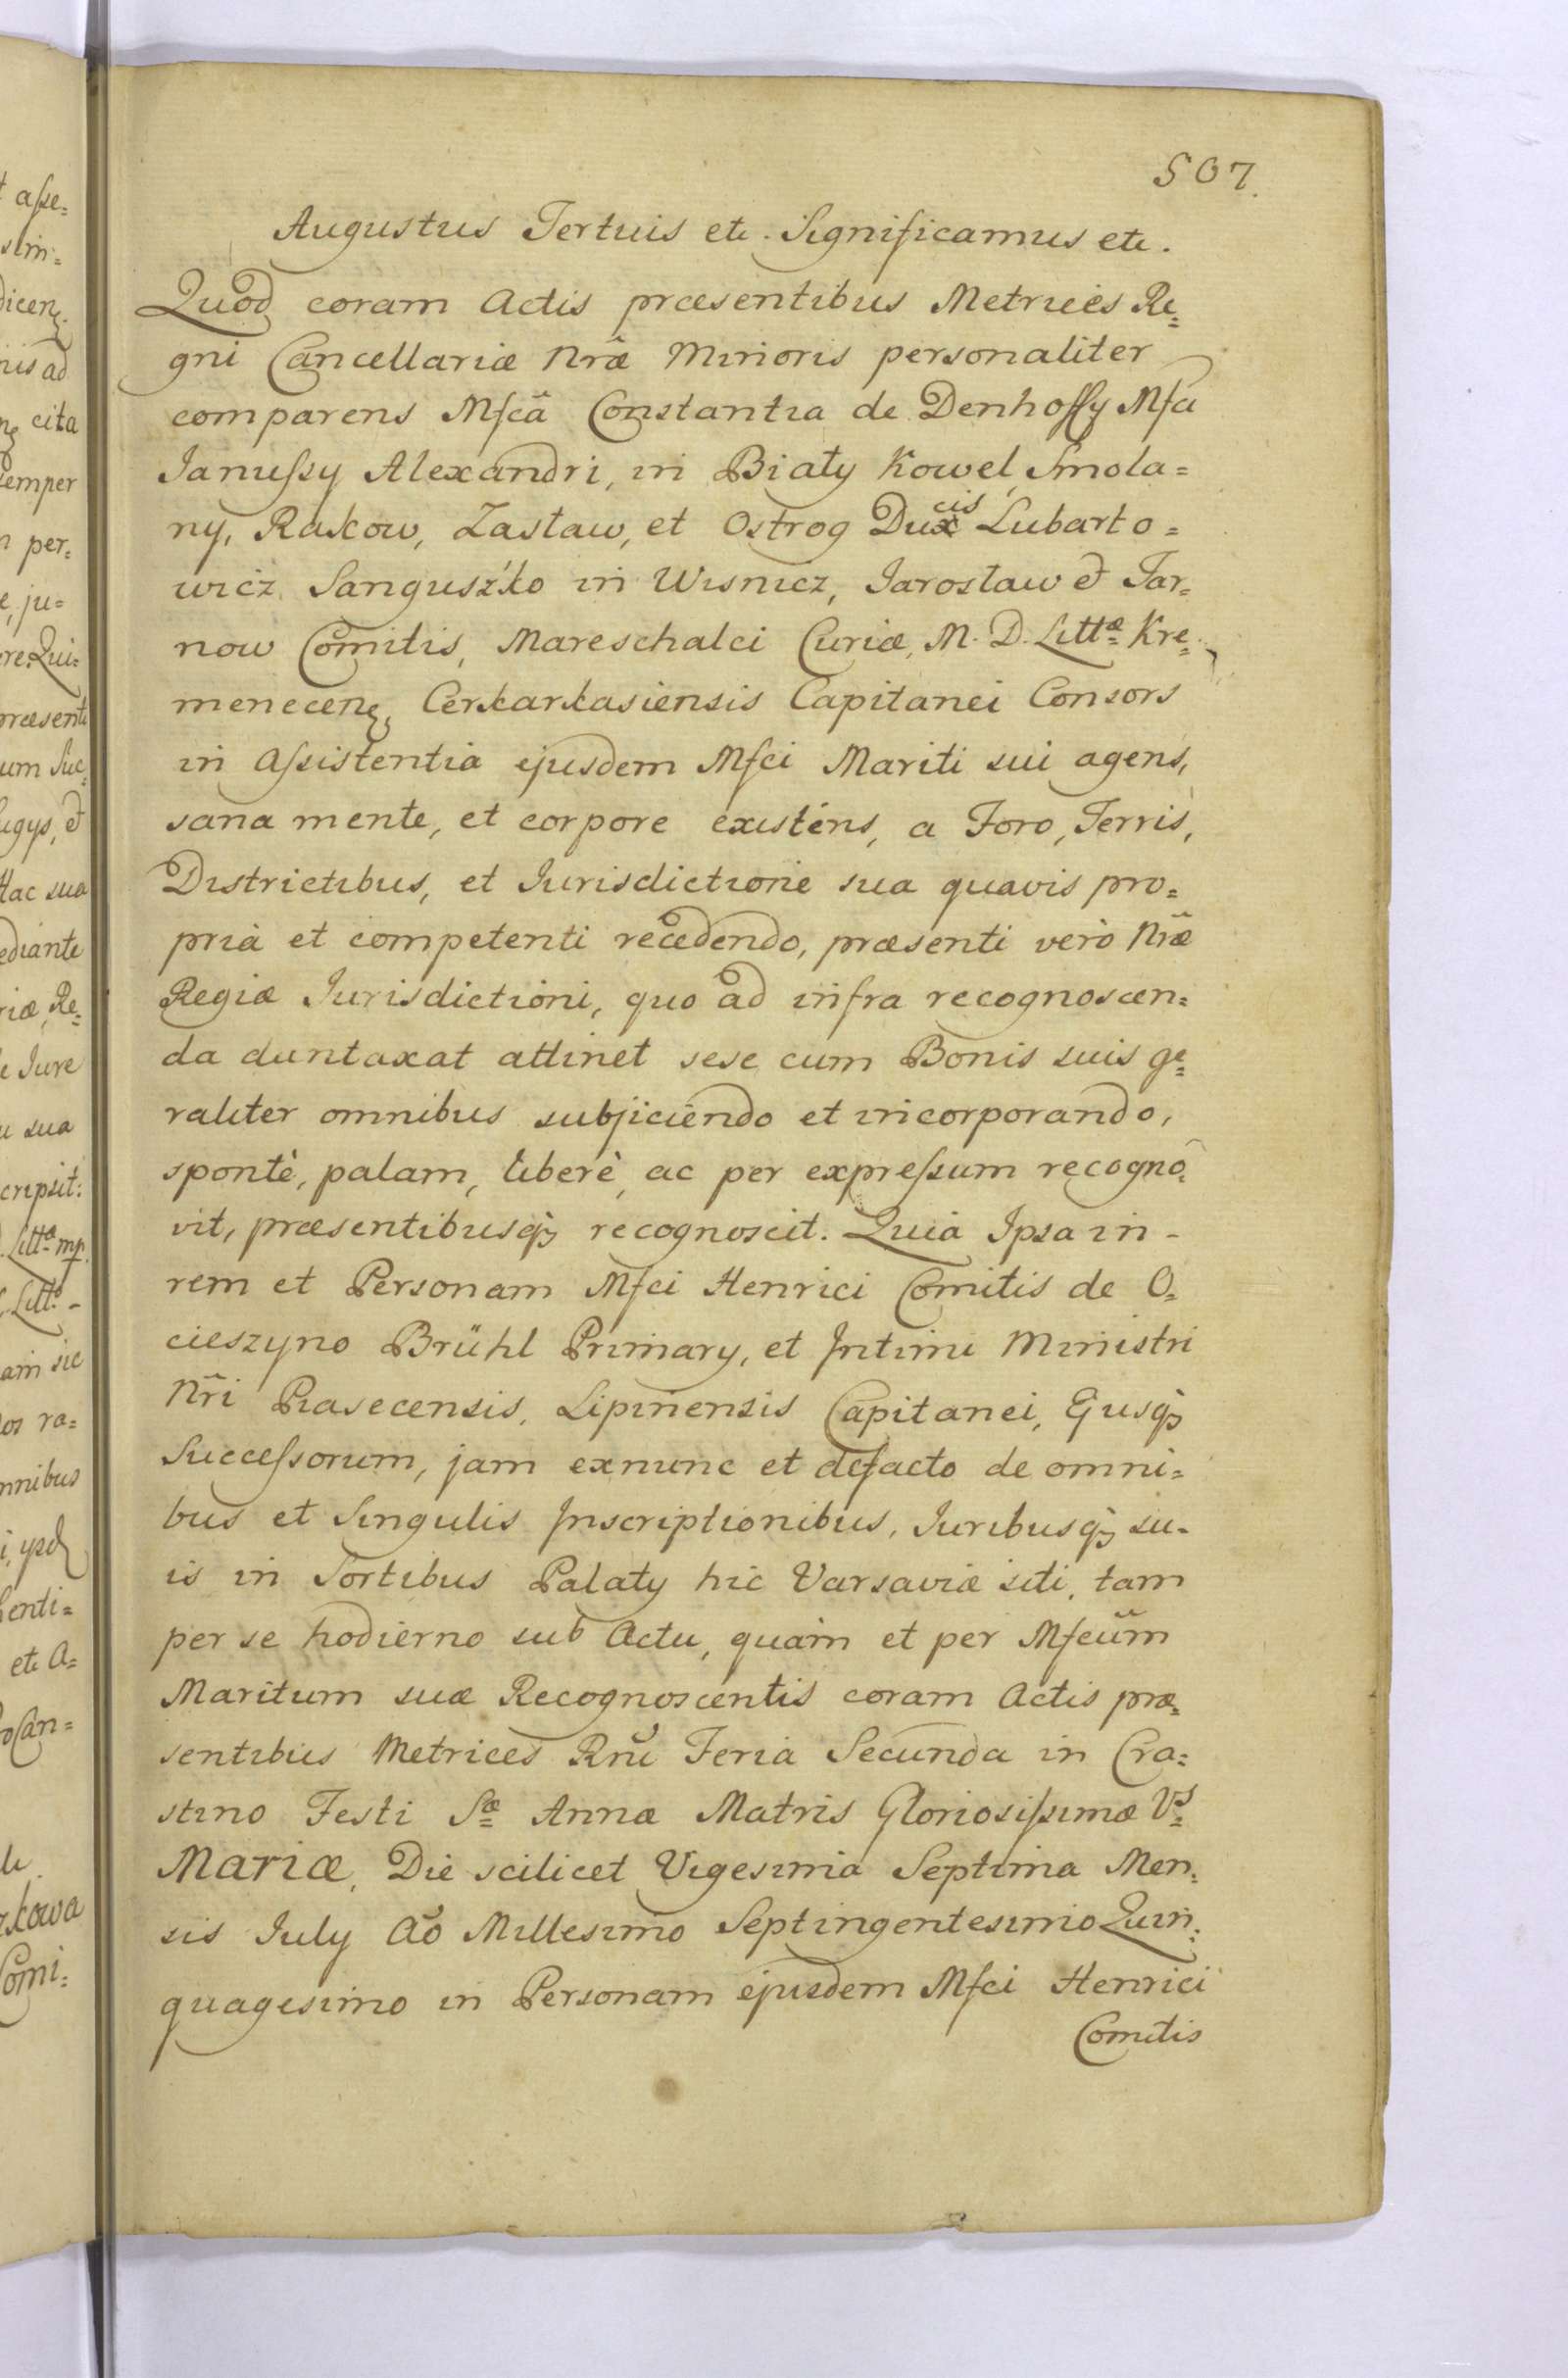 507.
Augustus Tertius etc. Significamus etc.
Quod coram Actis præsentibus Metrices Re=
gni Cancellariæ Nræ Minoris personaliter
comparens Mfca Constantia de Denhoffy Mfci
Janussy Alexandri, in Biały Kowel, Smola=
ny, Rakow, Zasław, et Ostrog Ducis Lubarto=
wicz Sanguszko in Wisnicz, Jarosław et Tar=
now Comitis, Mareschalci Curiæ, M. D. Littæ Kre=
menecen, Cerkarkasiensis Capitanei Consors
in Assistentia ejusdem Mfci Mariti sui agens,
sana mente, et corpore existens, a Foro, Terris,
Districtibus, et Jurisdictione sua quavis pro=
pria et competenti recedendo, præsenti verò Nræ
Regiæ Jurisdictioni, quo ad infra recognoscen=
da duntaxat attinet sese cum Bonis suis ge=
raliter omnibus subjiciendo et incorporando,
spontè, palam, liberè, ac per expressum recogno=
vit, præsentibusq recognoscit. Quia Ipsa in-
rem et Personam Mfci Henrici Comitis de O=
cieszyno Brühl Primary, et Intimi Ministri
Nri Piasecensis, Lipinensis Capitanei, Ejusq
Successorum, jam exnunc et defacto de omni=
bus et Singulis Inscriptionibus, Juribusq su-
is in Sortibus Palaty hic Varsaviæ siti, tam
per se hodierno sub Actu, quam et per Mfcum
Maritum suæ Recognoscentis coram Actis præ=
sentibus Metrices Rni Feria Secunda in Cra=
stino Festi Sæ Annæ Matris Gloriosissimæ Vs
Mariæ, Die scilicet Vigesima Septima Men=
sis July Ao Millesimo Septingentesimo Quin=
quagesimo in Personam ejusdem Mfci Henrici
Comitis